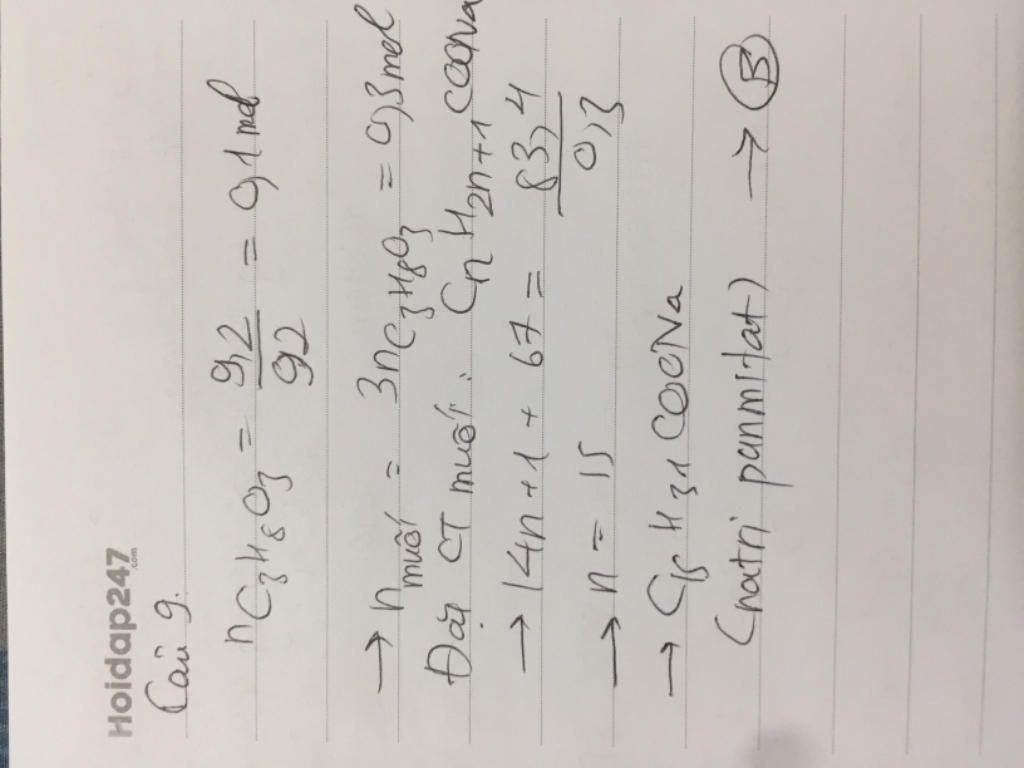 Hoidap247
.com
Câu 9.
nC3H8O3 = 9,2/92 = 0,1 mol
→ nmuối = 3nC3H8O3 = 0,3 mol
Đặt CT muối: CnH2n+1COONa
→ 14n + 1 + 67 = 83,4/0,3
→ n = 15
→ C15H31COONa
(natri panmitat) → B